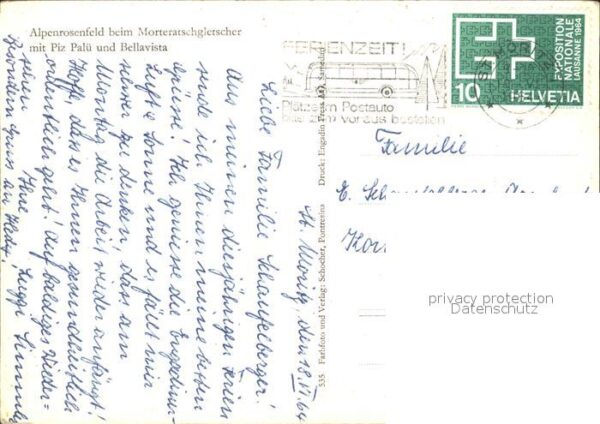 Alpenrosenfeld beim Morteratschgletscher
mit Piz Palü und Bellavista
St. Moritz, den 18. VI. 64
Liebe Familie Schaufelberger!
Aus meinen diesjährigen Ferien
sende ich Ihnen meine besten
Grüsse! Ich geniesse die Engadiner-
luft & Sonne und es fällt mir
schwer zu denken, dass am
Montag die Arbeit wieder anfängt!
Hoffe, dass es Ihnen gesundheitlich
ordentlich geht! Auf baldiges Wieder-
sehen Ihre
Besondern Gruss an Hedy!
535 Farbfoto und Verlag: Schocher, Pontresina
Druck: Engadin Press AG, Samedan
FERIENZEIT!
Plätze im Postauto
bitte zum voraus bestellen
ST. MORITZ
EXPOSITION
NATIONALE
LAUSANNE 1964
10 HELVETIA
Familie
E. Schaufelberger
privacy protection
Datenschutz